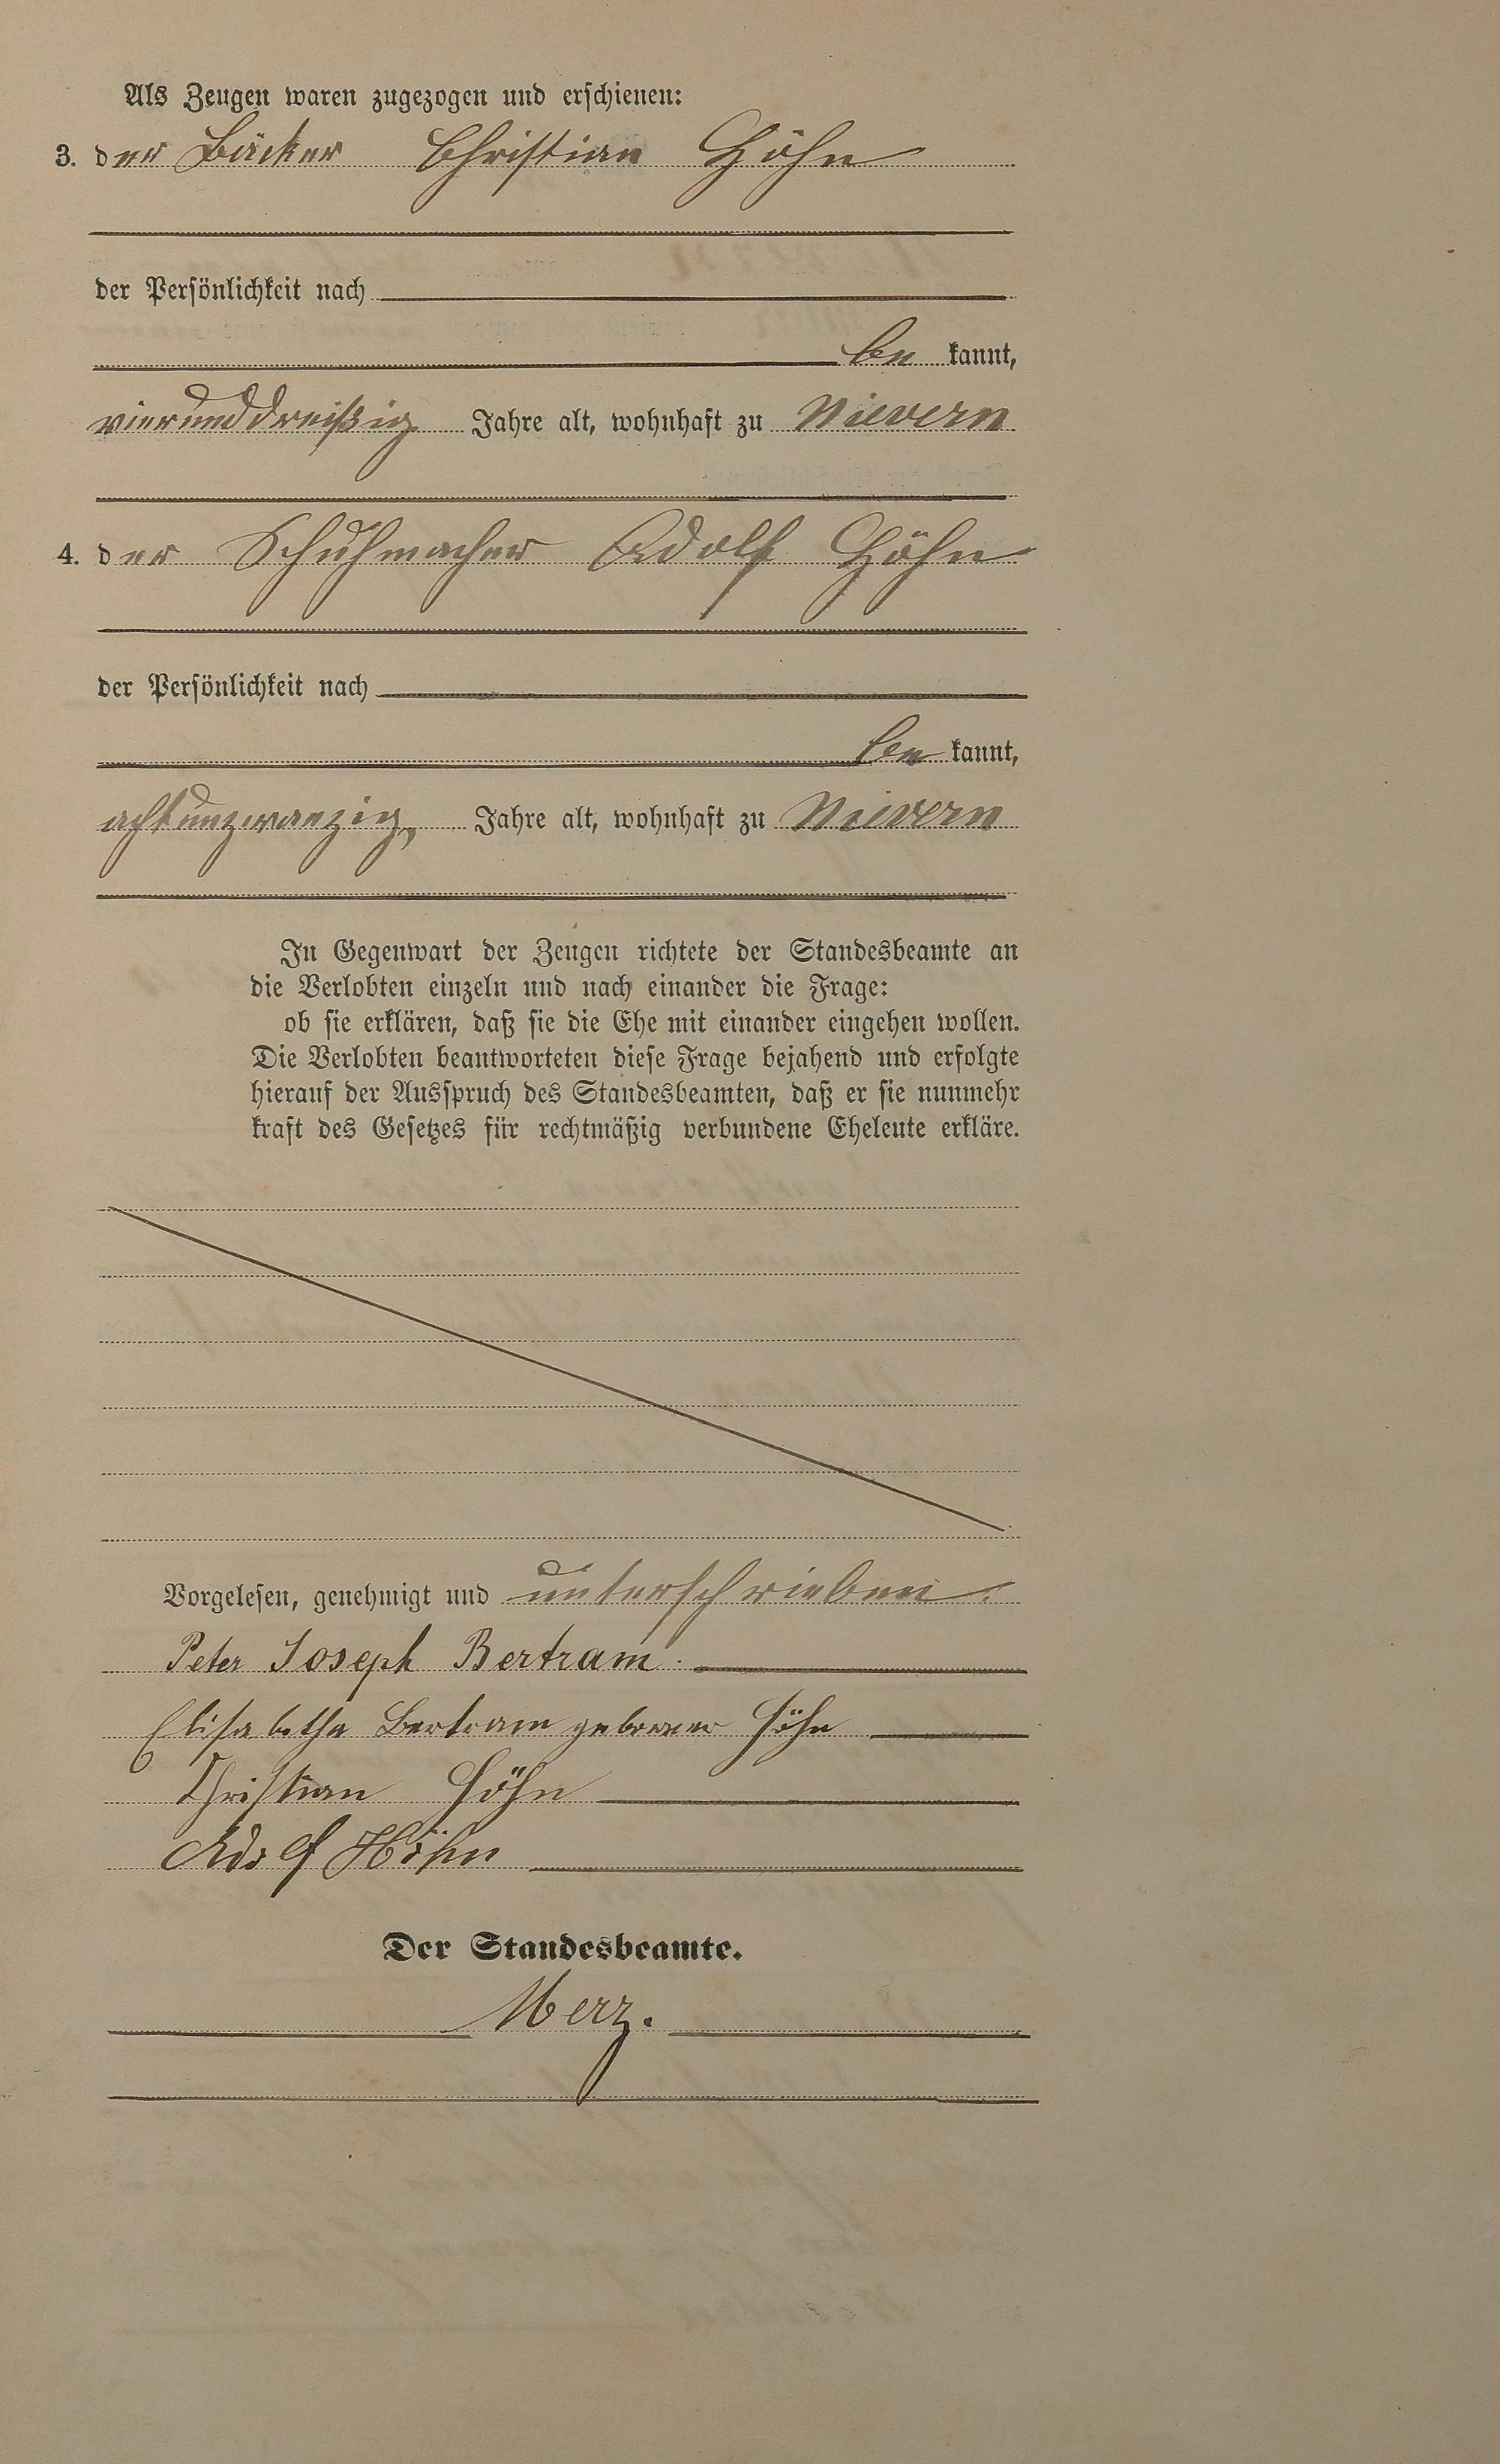 Als Zeugen waren zugezogen und erschienen:
3. der Bäcker Christian Höhn
der Persönlichkeit nach
be kannt,
vierunddreißig Jahre alt, wohnhaft zu Nievern
4. der Schuhmacher Adolf Höhn
der Persönlichkeit nach
be kannt,
achtunzwanzig, Jahre alt, wohnhaft zu Nievern
In Gegenwart der Zeugen richtete der Standesbeamte an
die Verlobten einzeln und nach einander die Frage:
ob sie erklären, daß sie die Ehe mit einander eingehen wollen.
Die Verlobten beantworteten diese Frage bejahend und erfolgte
hierauf der Ausspruch des Standesbeamten, daß er sie nunmehr
kraft des Gesetzes für rechtmäßig verbundene Eheleute erkläre.
Vorgelesen, genehmigt und unterschrieben.
Peter Joseph Bertram.
Elisabetha Bertram geborner Höhn
Christian Höhn
Adolf Höhn
Der Standesbeamte.
Merz.